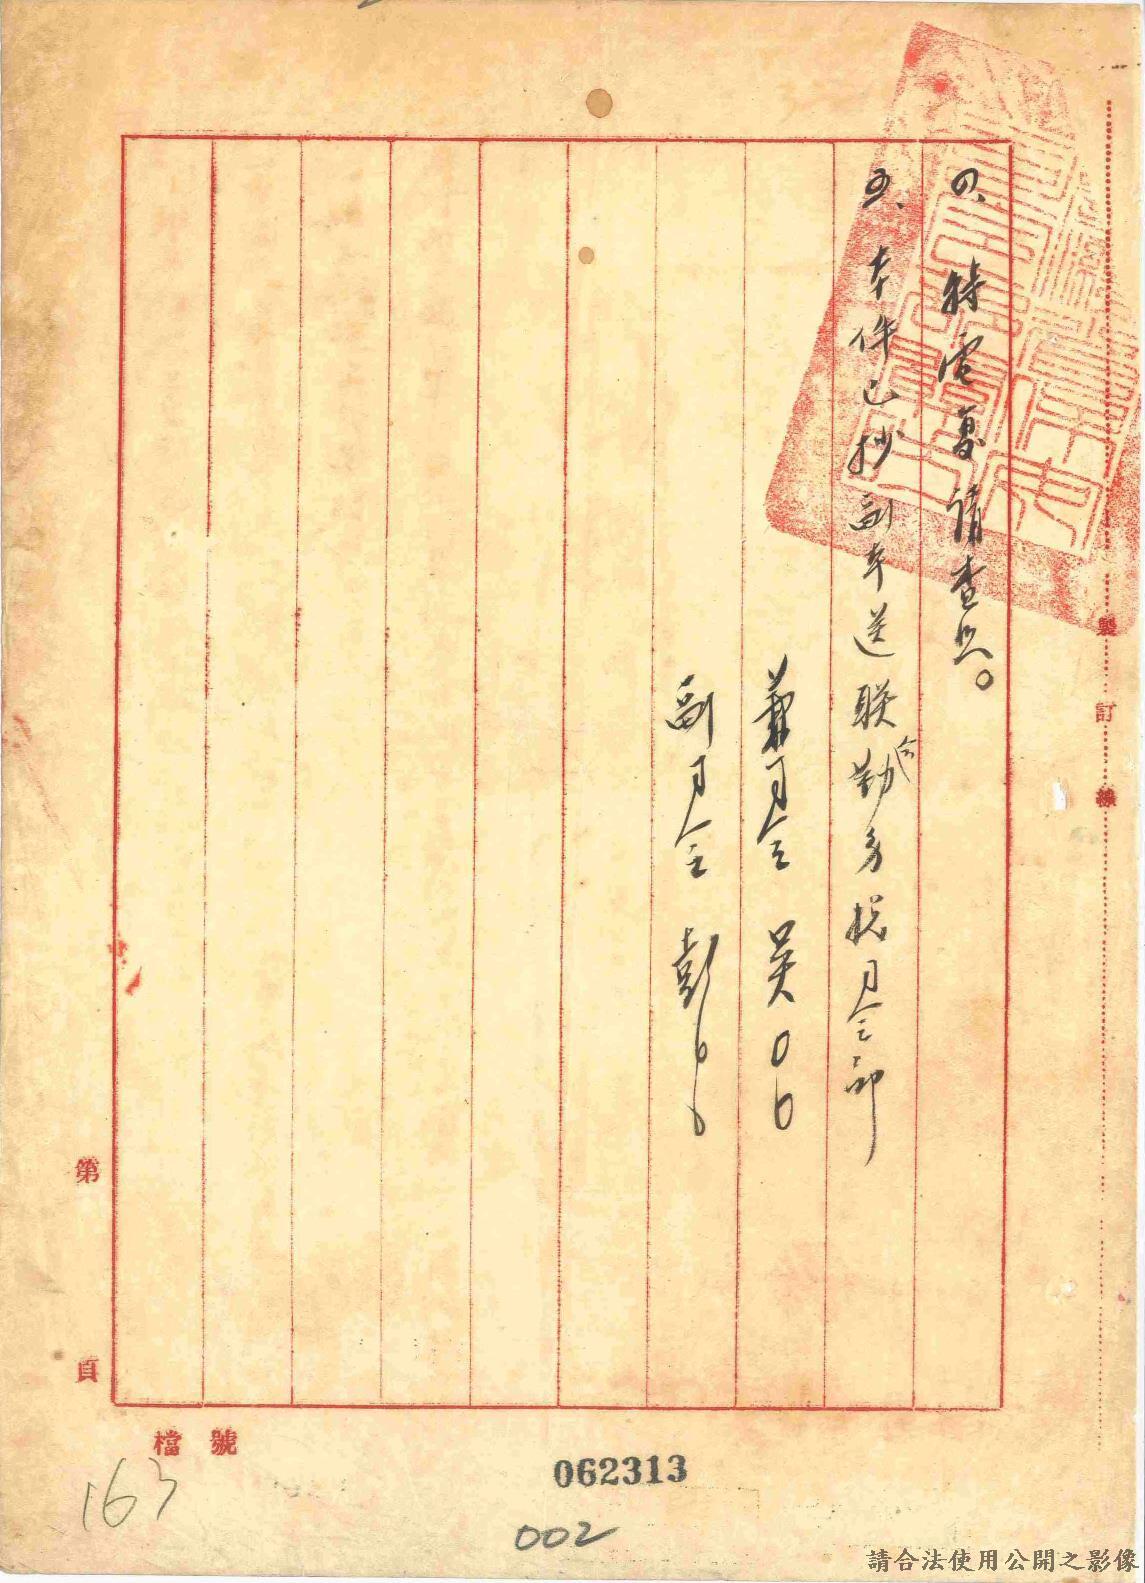 四、特電復請查照。
五、本件已抄副本送聯合勤務總司令部
兼司令 吳○○
副司令 彭○○
製訂線
第 頁
檔號
163
062313
002
請合法使用公開之影像